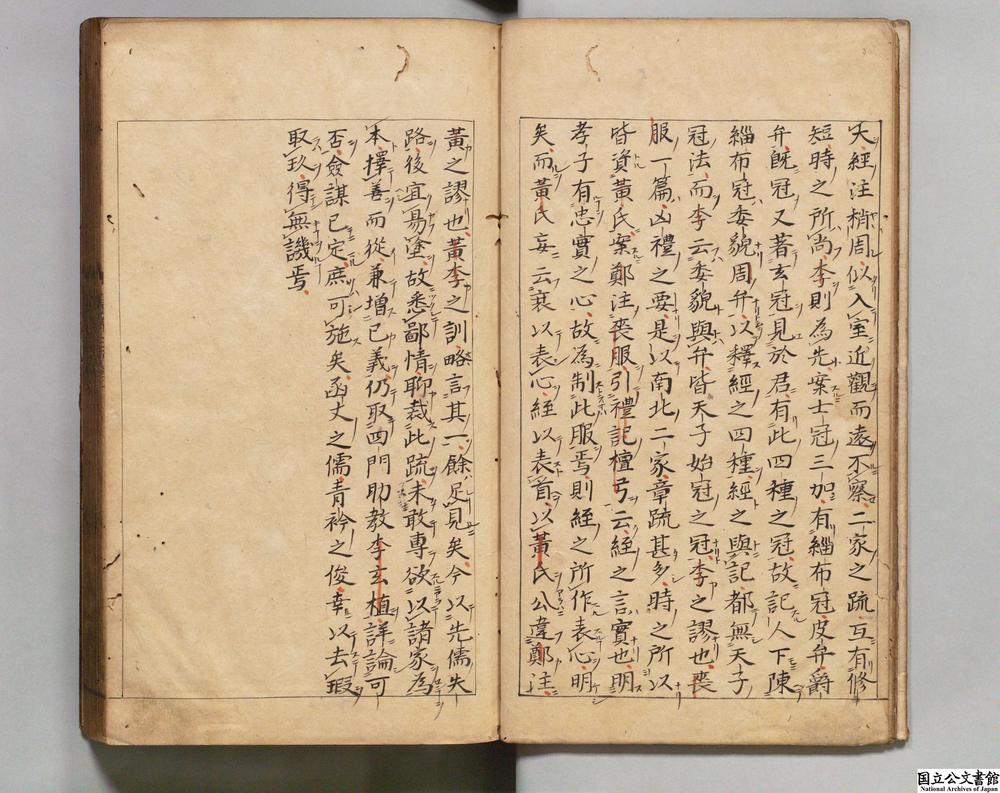 夭經注稍周似入室近觀而遠不察二家之疏互有修
短時之所尚李則為先案士冠三加有緇布冠皮弁爵
弁既冠又著玄冠見於君有此四種之冠故記人下陳
緇布冠委貌周弁以釋經之四種經之與記都無天子
冠法而李云委貌與弁皆天子始冠之冠李之謬也喪
服一篇凶禮之要是以南北二家章疏甚多時之所以
皆資黃氏案鄭注喪服引禮記檀弓云絰之言實也明
孝子有忠實之心故為制此服焉則經之所作表心明
矣而黃氏妄云衰以表心絰以表首以黃氏公違鄭注
黃之謬也黃李之訓略言其一餘足見矣今以先儒失
路後宜易塗故悉鄙情聊裁此疏未敢專欲以諸家為
本擇善而從兼增己義仍取四門助教李玄植詳論可
否僉謀已定庶可施矣函丈之儒青衿之俊幸以去瑕
取玖得無譏焉
国立公文書館
National Archives of Japan